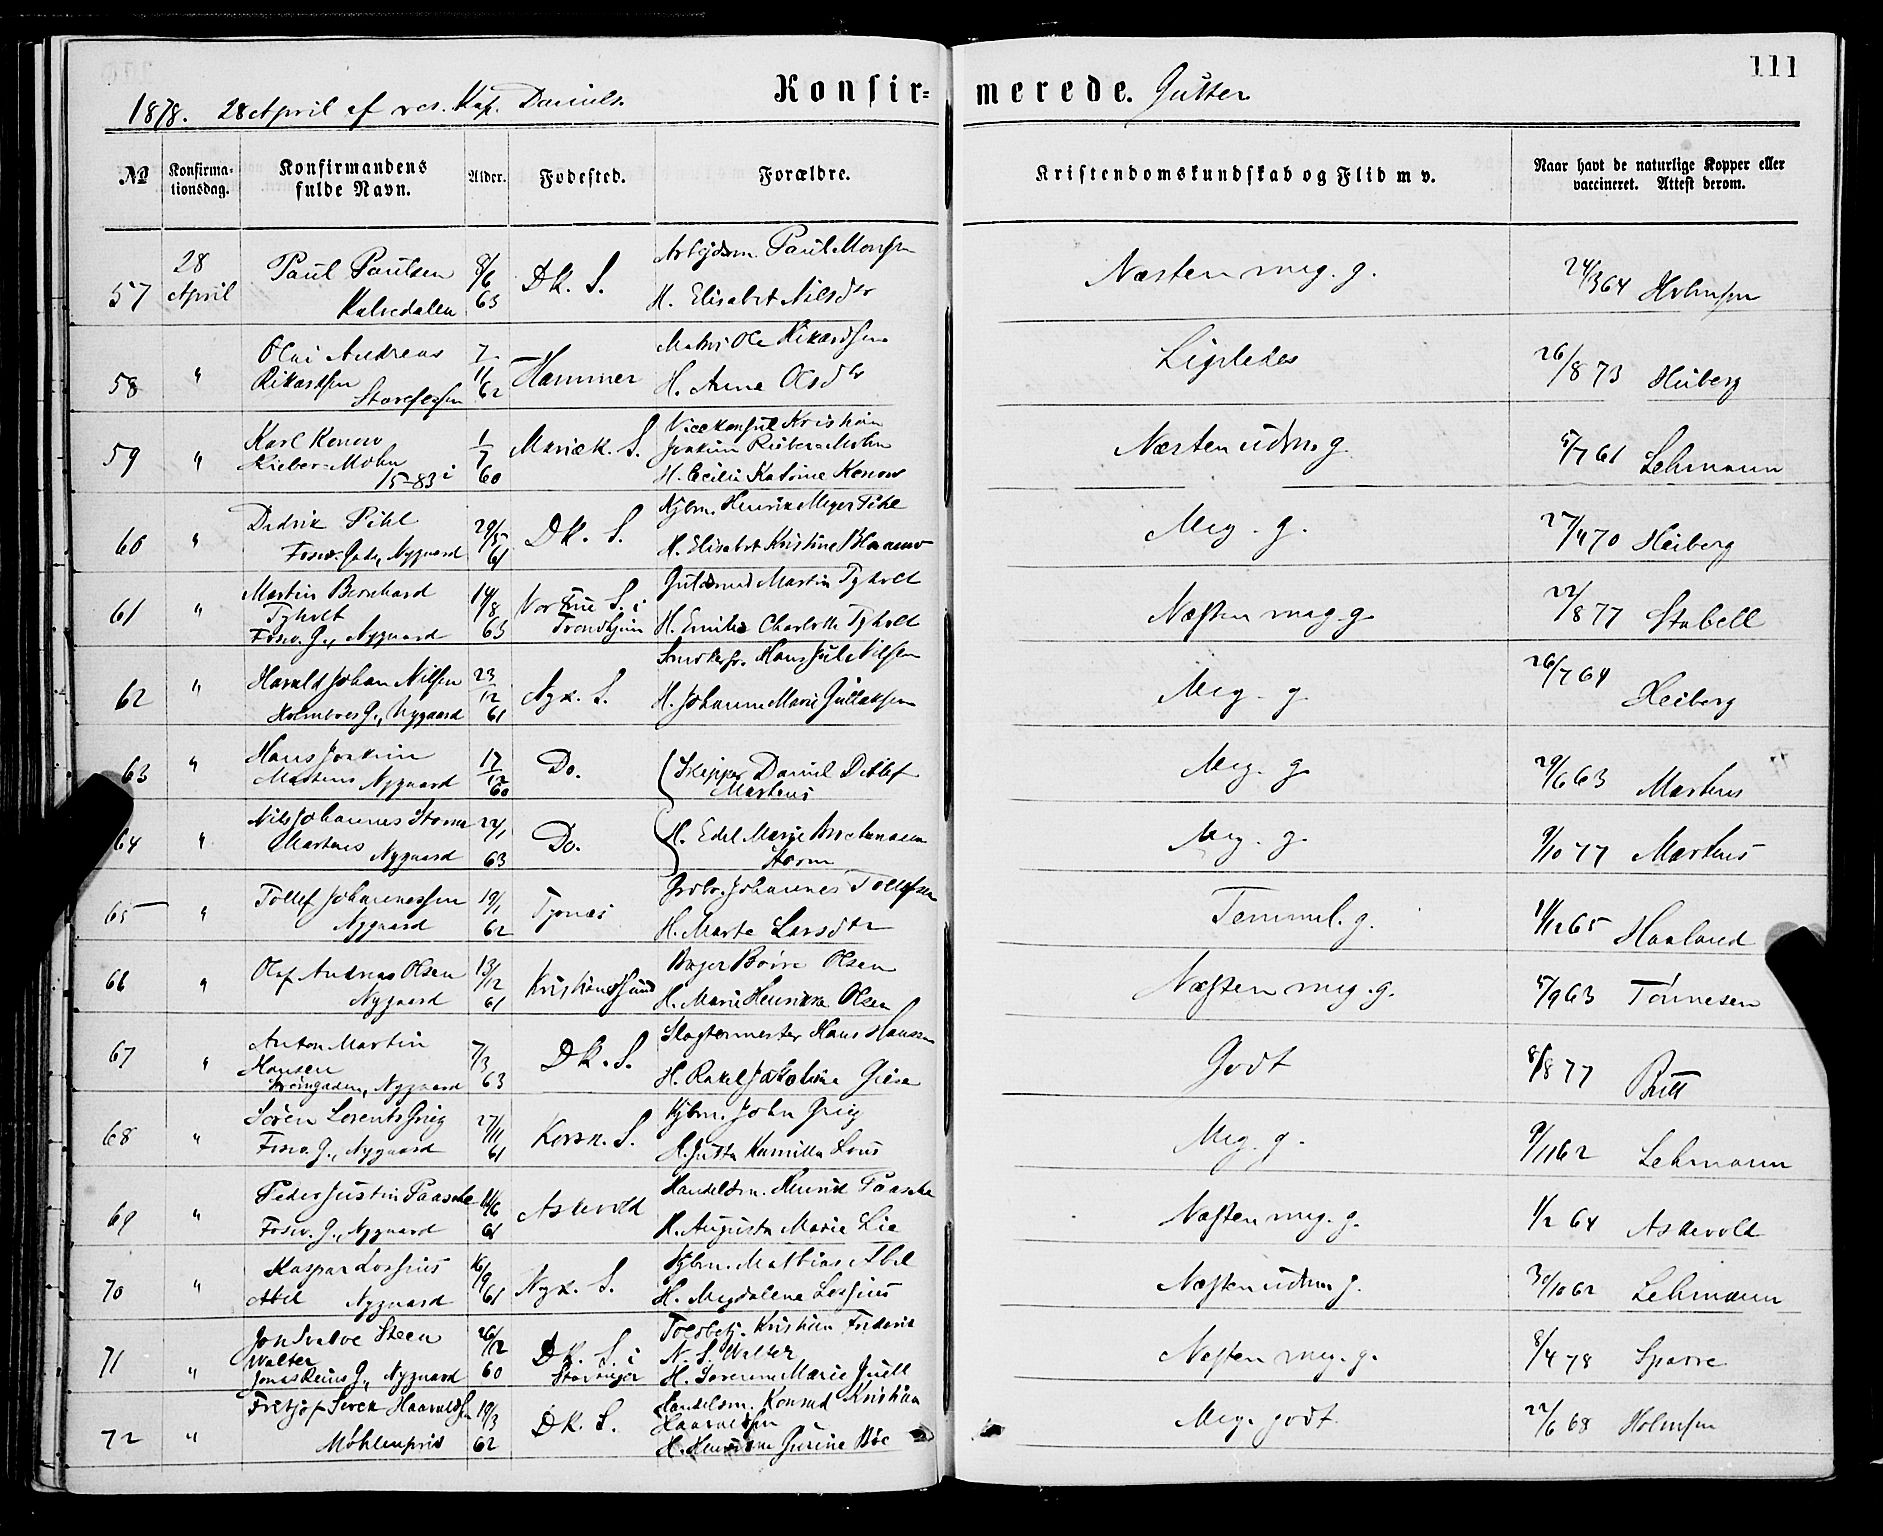 111
Konfirmerede. Gutter
1878. 28 April af res. Kap. Daniels.
№ Konfirmationsdag. Konfirmandens fulde Navn. Alder. Fødested. Forældre. Kristendomskundskab og Flid m v. Naar havt de naturlige Kopper eller vaccineret. Attest derom.
57 28 April Paul Paulsen Kalvedalen 8/6 63 Dk. S. Arbejdsm. Paul Monsen H. Elisabet Nilsdtr Næsten meg. g. 24/3 64 Holmsen
58 " Olai Andreas Rikardsen 7/11 62 Hammer Matros Ole Rikardsen H. Anne Olsdtr Ligeledes 26/8 73 Heiberg
59 " Karl Konow Rieber-Mohn 15-83 i 1/7 60 Mariæk. S. Vicekonsul Kristian Joakim Rieber-Mohn H. Cecilie Katrine Konow Næsten udm. g. 5/7 61 Lehmann
60 " Didrik Pihl Fosw. Gade, Nygaard 29/5 61 Dk. S. Kjbm. Henrik Meyer Pihl H. Elisabet Kristine Meg. g. 27/4 70 Heiberg
61 " Martin Bernhard Tyholt Fosw. G., Nygaard 14/8 63 Vor Frue S. i Trondhjem Guldsmed Martin Tyholt H. Emilie Charlotte Tyholt Næsten meg. g. 22/8 77 Stabell
62 " Harald Johan Nilsen Holmboes G., Nygaard 23/12 61 Nyk. S. Hans Jul Nilsen H. Johanne Marie Gullaksen Meg. g. 26/7 64 Heiberg
63 " Hans Joakim Martens Nygaard 17/12 60 Do. Skipper Daniel Detlef Martens Meg. g. 29/6 63 Martens
64 " Nils Johannes Storm Martens Nygaard 22/1 63 Do. H. Edel Marie Storm Meg. g. 9/10 77 Martens
65 " Tollef Johannessen Nygaard 19/1 62 Tysnæs Johannes Tollefsen H. Marte Larsdtr Temmel. g. 11/12 65 Haaland
66 " Olaf Andreas Olsen Nygaard 13/12 61 Kristianssund Bager Børre Olsen H. Marie Henrikke Olsen Næsten meg. g. 5/9 63 Tønnesen
67 " Anton Martin Hansen Nygaard 7/3 63 Dk. S. Slagtermester Hans Hansen H. Rakel Jakobine Giese Godt 8/8 77 Britt
68 " Søren Lorents Grieg Fosw. G., Nygaard 27/11 61 Korsk. S. Kjbm. John Grieg H. Jutta Kamilla Lous Meg. g. 9/11 62 Lehmann
69 " Peder Justin Paasche Fosw. G., Nygaard 14/6 61 Askevold Handelsm. Henrik Paasche H. Augusta Marie Lie Næsten meg. g. 1/2 64 Askevold
70 " Kaspar Lossius Abel Nygaard 16/9 61 Nyk. S. Kjbm. Mathias Abel H. Magdalena Lossius Næsten udm. g. 30/10 62 Lehmann
71 " Steen Walter Jonas Reins G., Nygaard 26/2 60 Dk. S. i Stavanger Toldbetj. Kristian Frederik N. S. Walter H. Severine Marie Juell Næsten meg. g. 8/4 78 Sparre
72 " Fritjof Severin Haaraldsen Møhlenpris 19/3 62 Dk. S. Handelsm. Konrad Kristian Haaraldsen H. Gurine Bøe Meg. godt 22/6 68 Holmsen